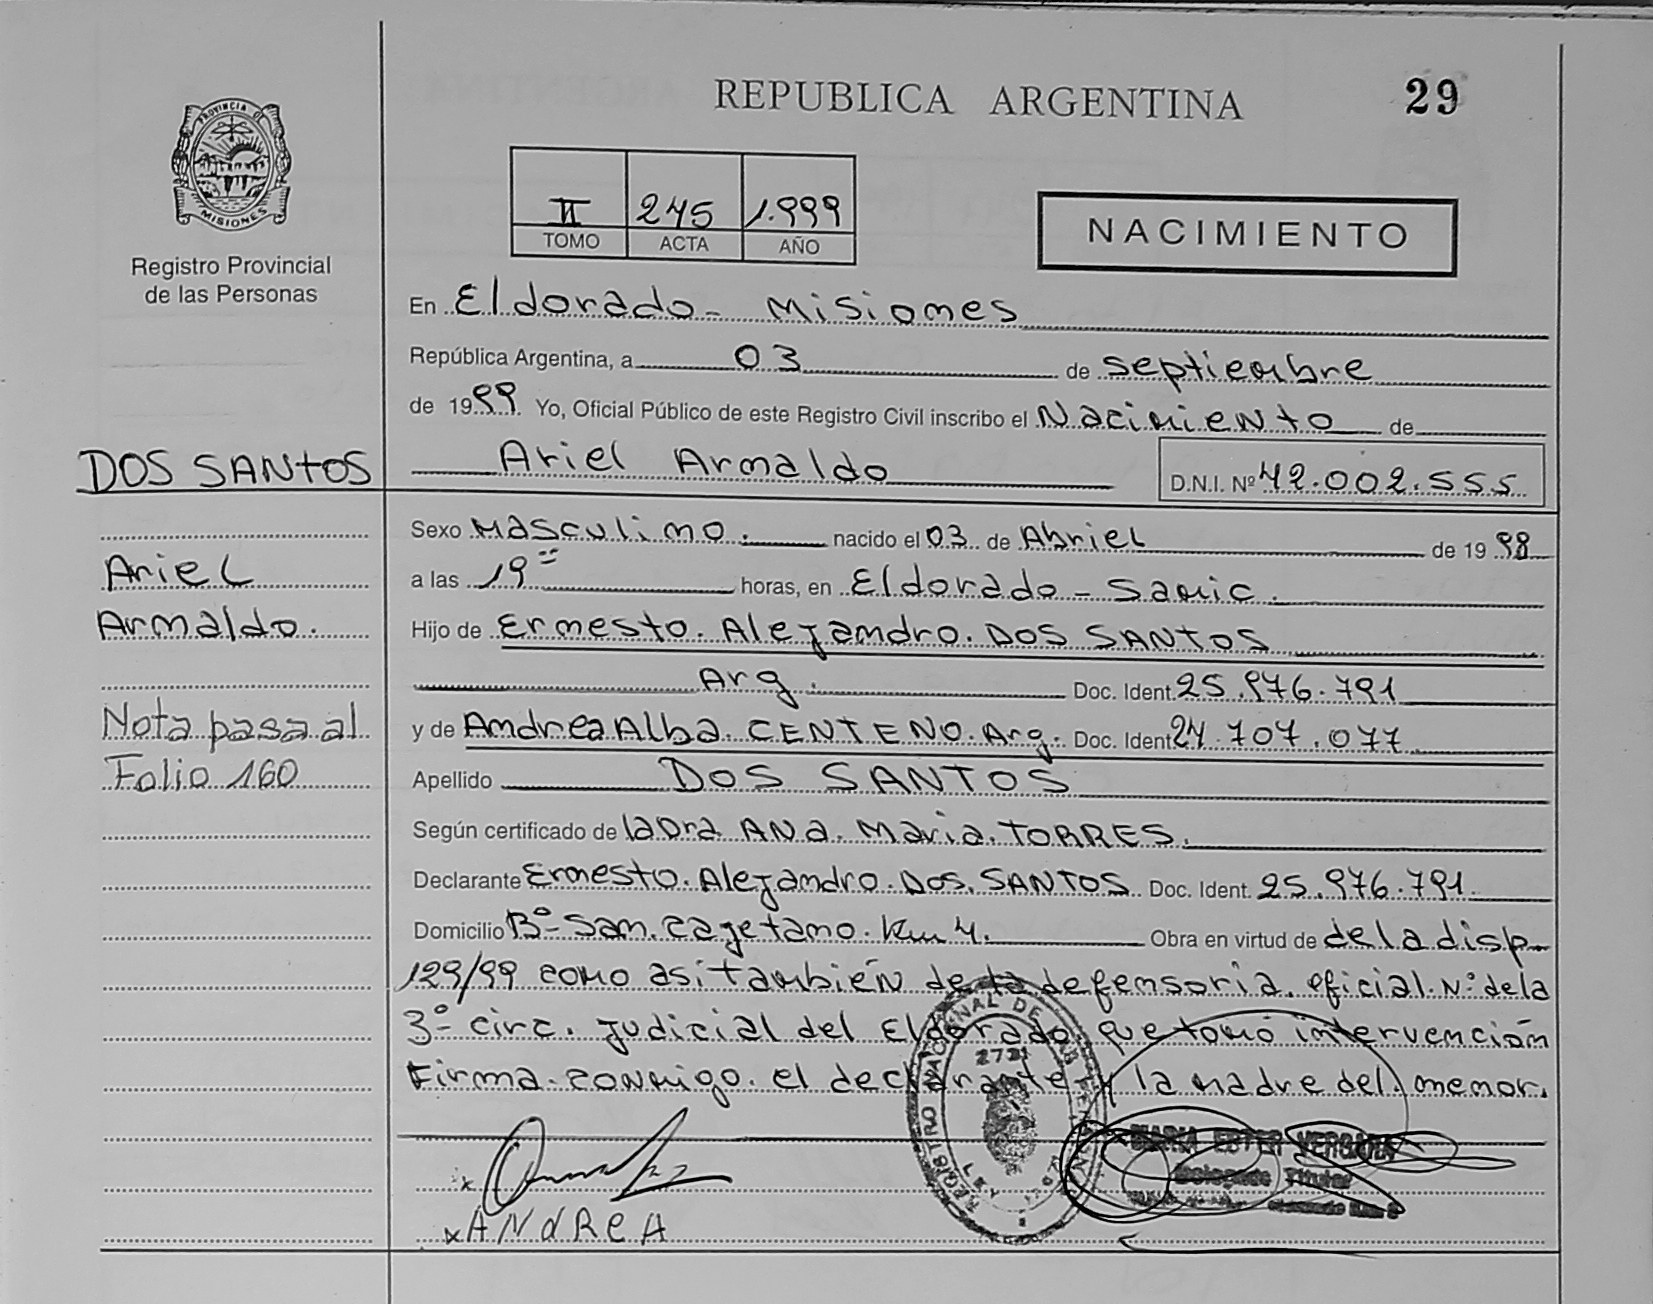 REPUBLICA ARGENTINA
29
PROVINCIA DE
MISIONES
Registro Provincial
de las Personas
II 245 1.999
TOMO ACTA AÑO
NACIMIENTO
En Eldorado - Misiones
República Argentina, a 03 de septiembre
de 1999 Yo, Oficial Público de este Registro Civil inscribo el Nacimiento de
Ariel Arnaldo D.N.I. Nº 42.002.555
DOS SANTOS
Ariel
Arnaldo.
Nota pasa al
Folio 160
Sexo Masculino. nacido el 03 de Abriel de 1998
a las 19 horas, en Eldorado - Samic.
Hijo de Ernesto. Alejandro. DOS SANTOS
Arg. Doc. Ident. 25.976.791
y de Andrea Alba. CENTENO. Arg. Doc. Ident 24.707.077
Apellido DOS SANTOS
Según certificado de la Dra ANA. Maria. TORRES.
Declarante Ernesto. Alejandro. Dos. SANTOS Doc. Ident. 25.976.791
Domicilio Bº San. Cayetano. Km 4. Obra en virtud de de la disp
129/99 como asi también de la defensoria. oficial. Nº de la
3º circ. Judicial del Eldorado que tomó intervención
Firma. conmigo. el declarante y la madre del. menor.
REGISTRO NACIONAL DE LAS PERSONAS
2721
MARIA ESTER VERGARA
Delegada Titular
x
x ANdREA